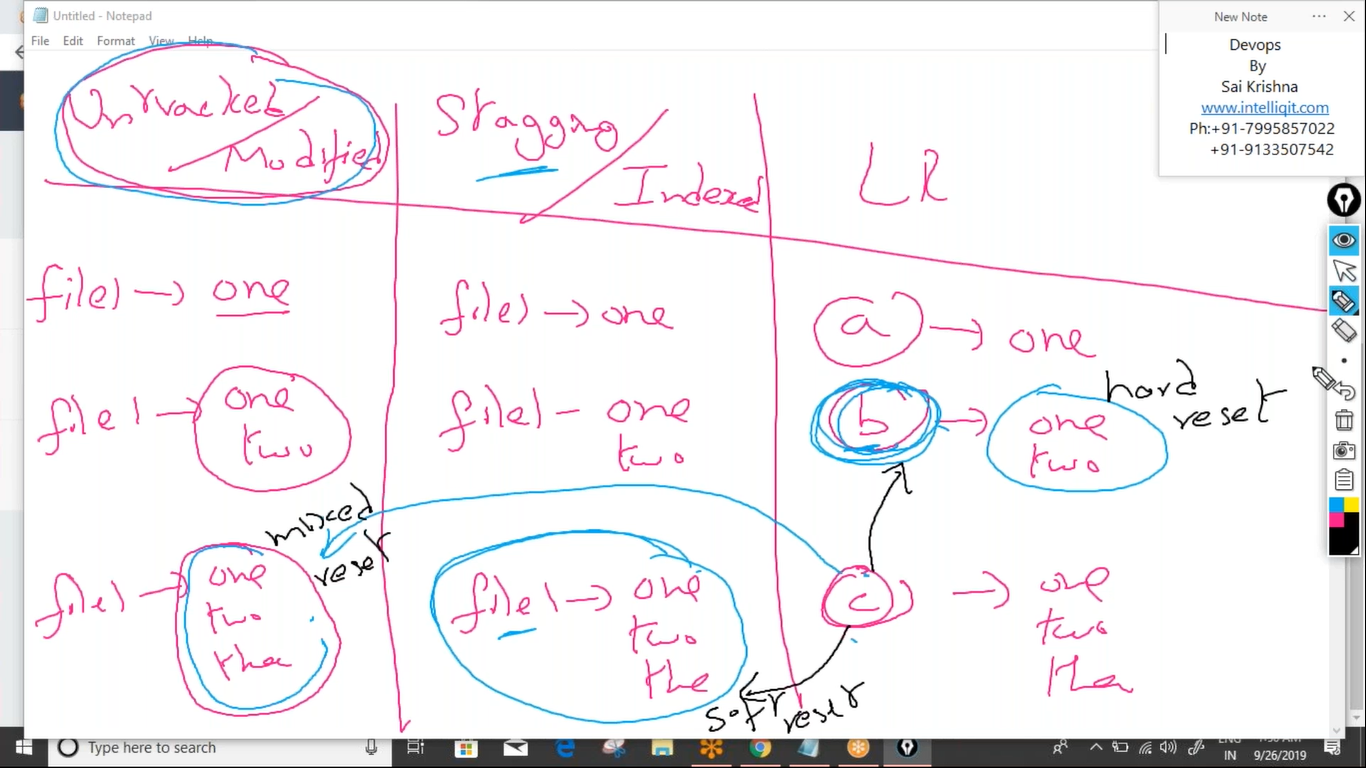 Untitled - Notepad
File Edit Format View Help
New Note
Devops
By
Sai Krishna
www.intelliqit.com
Ph:+91-7995857022
+91-9133507542
Untracked
Modified
Stagging
Indexed
LR
file1 → one
file1 → one
a → one
file1 → one
two
file1 - one
two
b → one
two
hard
reset
mixed
reset
file1 → one
two
file1 → one
two
the
c → one
two
soft reset
Type here to search
ENG
IN
9/26/2019